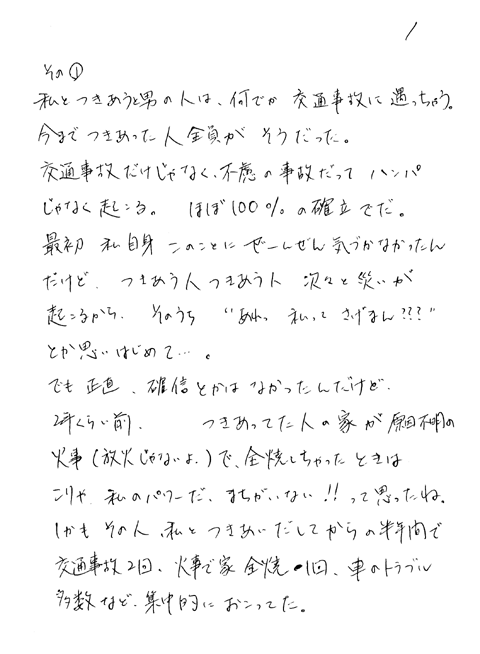 1
その①
私とつきあうと男の人は、何でか 交通事故に遇っちゃう。
今まで つきあった人全員が そうだった。
交通事故だけじゃなく、不慮の事故だって ハンパ
じゃなく起こる。 ほぼ100%の確立でだ。
最初 私自身 このことに ぜーんぜん気づかなかったん
だけど、つきあう人つきあう人 次々と災いが
起こるから、そのうち “あれっ 私って さげまん???”
とか思いはじめて…。
でも 正直、確信とかは なかったんだけど、
2年くらい前、 つきあってた人の家が原因不明の
火事(放火じゃないよ。)で、全焼しちゃったときは
こりゃ、私のパワーだ、まちがいない!! って思ったね。
しかも その人、私と つきあいだしてからの半年間で
交通事故2回、火事で家 全焼・1回、車のトラブル
多数など、集中的に おこってた。